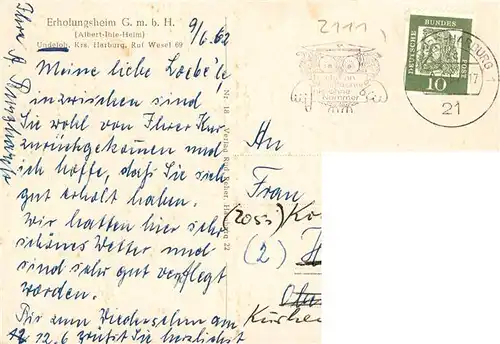 Erholungsheim G. m. b. H.
(Albert-Ihle-Heim)
Undeloh, Krs. Harburg, Ruf Wesel 69
9/6. 62
Meine liebe
inzwischen sind
Sie wohl von Ihrer Kur
zurückgekommen und
ich hoffe, daß Sie sich
gut erholt haben.
Wir hatten hier sehr
schönes Wetter und
sind sehr gut verpflegt
worden.
Bis zum Wiedersehen am
12.6 grüßt Sie herzlichst
Ihre A.
Nr. 18 Verlag Rud. Reher, Hamburg 22
2111
DEUTSCHE BUNDESPOST
10
21
An
Frau
(2055)
(2)